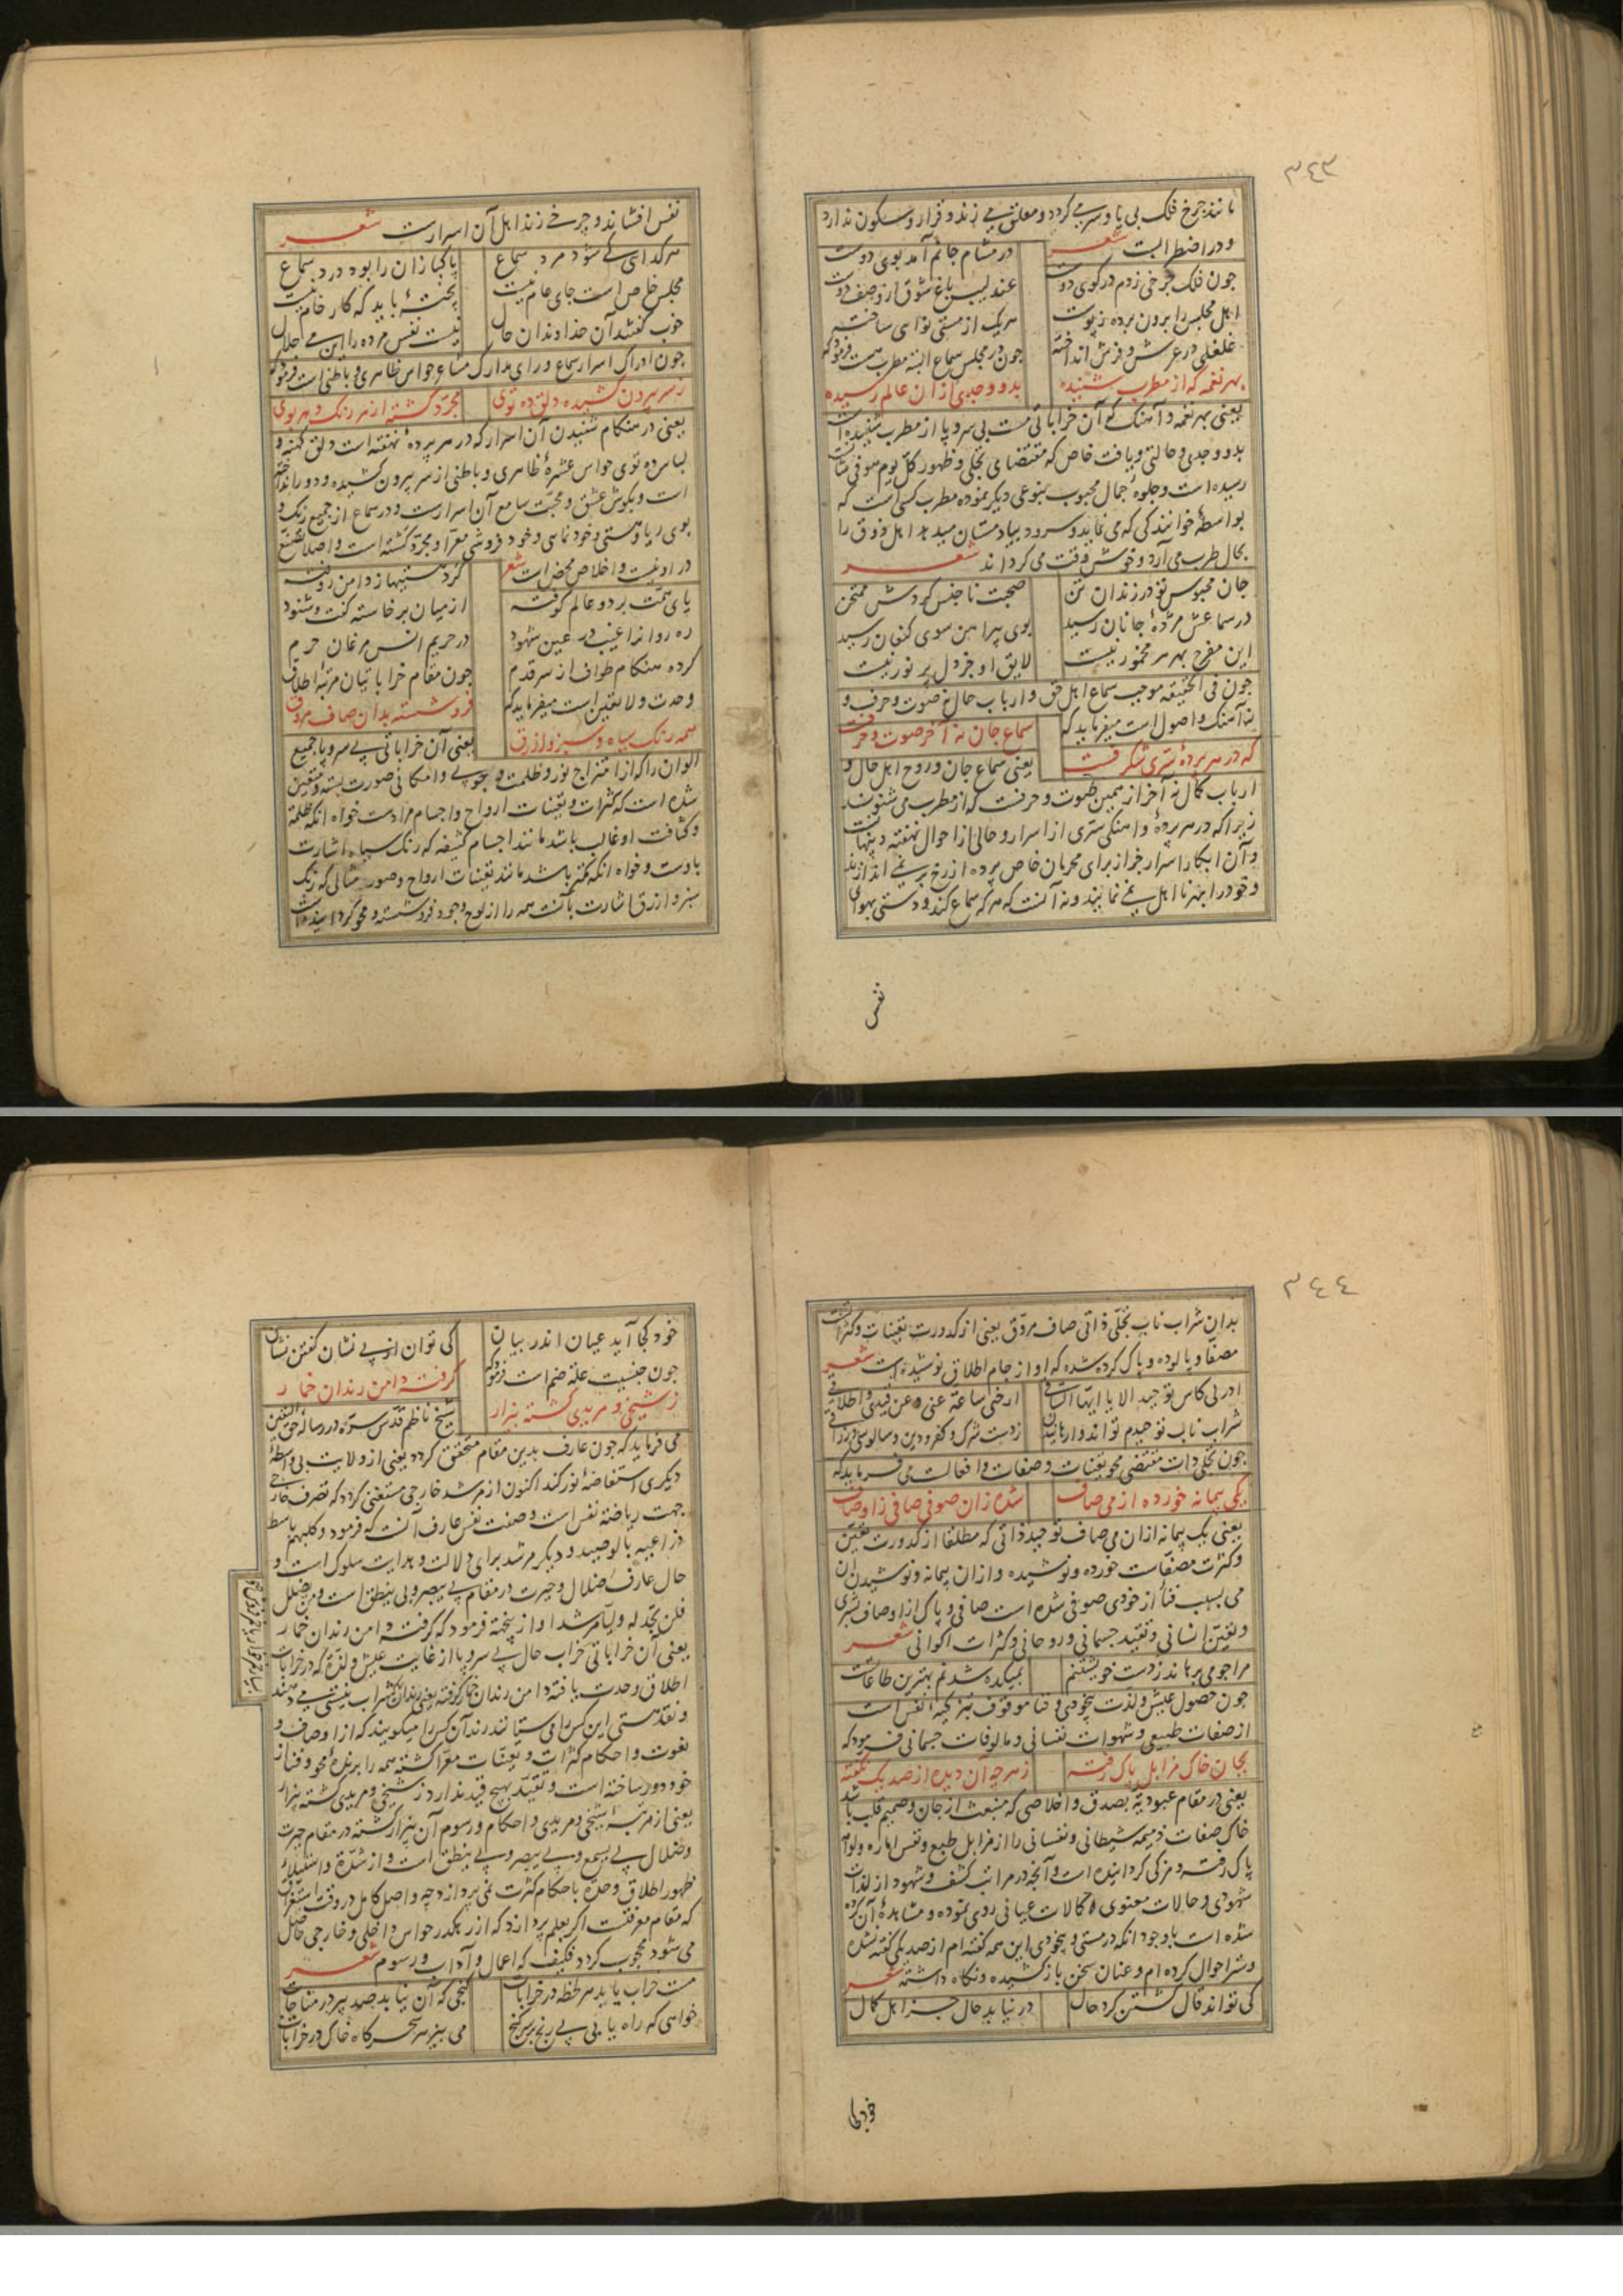 ٣٤٣
مانند چرخ فلک بی پا و سر می گردد و معلق می زند و قرار و سکون ندارد
و در اضطرابست شعر
چون فلک چرخی زدم در کوی دوست در مشام جانم آمد بوی دوست
اهل مجلس را برون برده ز پوست عندلیب باغ شوق از وصف دوست
غلغلی در عرش و فرش انداخته هر یک از مستی نوای ساخته
چون در مجلس سماع البته مطرب هست فرمود که
بهر نغمه که از مطرب شنیده بدو وجدی از ان عالم رسیده
یعنی بهر نغمه و آهنگ که آن خراباتی مست بی سر و پا از مطرب شنیده است
بدو وجدی و حالتی و یافت خاص که مقتضای تجلی و ظهور کل یوم هو فی شأنست
رسیده است و جلوهٔ جمال محبوب بنوعی دیگر نموده مطرب کسی است که
بواسطهٔ خوانندگی که می نماید و سرود بیاد مستان میدهد اهل ذوق را
بحال طرب می آرد و خوش وقت می گرداند شعر
جان محبوس تو در زندان تن صحبت ناجنس کردش ممتحن
در سماعش مژدهٔ جانان رسید بوی پیراهن سوی کنعان رسید
این مفرح بهر هر مخمور نیست لایق او جز دل پر نور نیست
چون فی الحقیقه موجب سماع اهل حق و ارباب حال نه صوت و حرف و
نه آهنگ و اصول است میفرماید که سماع جان نه آخر صوت و حرفست
که در هر پردهٔ سّری شگرفست یعنی سماع جان و روح اهل حال و
ارباب کمال نه آخر از همین صوت و حرفست که از مطرب می شنوند
زیرا که در هر پردهٔ و آهنگی سّری از اسرار و حالی از احوال نهفته و پنهانست
و آن ابکار اسرار جز از برای محرمان خاص پرده از رخ بر نمی اندازند
و خود را بهر نا اهل نمی نمایند و نه آنست که هر که سماع کند و دستی بهوای
نفس
نفس افشاند و چرخی زند اهل آن اسرارست شعر
هر گدای کی شود مرد سماع پاکبازان را بود درد سماع
مجلس خاص است جای عام نیست پختهٔ باید که کار خام نیست
خوب گفتند آن خداوندان حال نیست نفس مرده را این می حلال
چون ادراک اسرار سماع ورای مدارک مشاعر حواس ظاهری و باطنی است فرمود که
ز سر بیرون کشیده دلق ده توی مجرّد گشته از هر رنگ و هر بوی
یعنی در هنگام شنیدن آن اسرار که در هر پردهٔ نهفته است دلق کهنه و
لباس ده توی حواس عشرهٔ ظاهری و باطنی از سر بیرون کشیده و دور انداخته
است و بگوش عشق و محبت سامع آن اسرارست و در سماع از جمیع رنگ و
بوی ریا و هستی و خود نمایی و خود فروشی معرّا و مجرّد گشته است و اصلا تصنع
در او نیست و اخلاص محض است شعر
پای همّت بر دو عالم کوفته گرد هستیها ز دامن روفته
ره روانرا غیب در عین شهود از میان برخاسته گفت و شنود
کرده هنگام طواف از سر قدم در حریم انس مرغان حرم
چون مقام خراباتیان مرتبهٔ اطلاق وحدت و لا تعین است میفرماید که
فرو شسته بدان صاف مروق همه رنگ سیاه و سبز و ازرق
یعنی آن خراباتی بی سر و پا جمیع
الوان را که از امتزاج نور و ظلمت وجوبی و امکانی صورت بسته و متعین
شده است که کثرات و تعینات ارواح و اجسام مرادست خواه آنکه ظلمت
و کثافت او غالب باشد مانند اجسام کثیفه که رنگ سیاه اشارت
باوست و خواه آنکه کمتر باشد مانند تعینات ارواح و صور مثالی که رنگ
سبز و ازرق اشارت بآنست همه را از لوح وجود فرو شسته و محو گردانیده است
٣٤٤
بدان شراب ناب تجلی ذاتی صاف مروّق یعنی از کدورت تعینات و کثرات
مصفّا و پالوده و پاک کرده شده که او از جام اطلاق نوشیده است شعر
ادر لی کاس توحید الا یا ایها الساقی ارحنی ساعة عنی و عن قیدی و اطلاقی
شراب ناب توحیدم تواند وارهانیدن ز دست شرک و کفر و دین و سالوسی و زراقی
چون تجلی ذات مقتضی محو تعینات و صفات و افعالست می فرماید که
یکی پیمانه خورده از می صاف شده زان صوفی صافی ز اوصاف
یعنی یک پیمانه ازان می صاف توحید ذاتی که مطلقا از کدورت تعین
و کثرت مصفّاست خورده و نوشیده و ازان پیمانه و نوشیدن آن
می بسبب فنا از خودی صوفی شده است صافی و پاک از اوصاف بشری
و تعین انسانی و تقید جسمانی و روحانی و کثرات اکوانی شعر
مرا چو می برهاند ز دست خویشتنم بمیکده شدنم بهترین طاعات
چون حصول عیش و لذت بیخودی و فنا موقوف تزکیهٔ نفس است
از صفات طبیعی و شهوات نفسانی و مالوفات جسمانی فرمود که
بجان خاک مزابل پاک رفته ز هرچه آن دیده از صد یک نگفته
یعنی در مقام عبودیة بصدق و اخلاصی که منبعث از جان و صمیم قلب باشد
خاک صفات ذمیمه شیطانی و نفسانی را از مزابل طبع و نفس اماره و لوامه
پاک رفته و مزکی گردانیده است و آنچه در مراتب کشف و شهود از لذات
شهودی و حالات معنوی و کمالات عیانی روی نموده و مشاهدهٔ آن کرده
شده است باوجود آنکه در مستی و بیخودی این همه گفته ام از صد یکی گفته نشده
و ستر احوال کرده ام و عنان سخن باز کشیده و نگاه داشته شعر
کی تواند قال گشتن گرد حال در نیابد حال جز اهل کمال
خود کجا
خود کجا آید عیان اندر بیان کی توان از بی نشان گفتن نشان
چون جنسیت علة ضم است فرمود که گرفته دامن رندان خمار
ز شیخی و مریدی گشته بیزار شیخ ناظم قدس سره در رسالهٔ حق الیقین
می فرماید که چون عارف بدین مقام متحقق گردد یعنی از ولایت بی واسطهٔ
دیگری استفاضهٔ نور کند اکنون از مرشد خارجی مستغنی گردد که تصرف خارجی
جهت ریاضة نفس است و صفت نفس عارف آنست که فرمود و کلبهم باسط
ذراعیه بالوصید و دیگر مرشد برای دلالت و هدایت سلوک است و
حال عارف ضلال و حیرت در مقام بی یبصر و بی ینطق است و من یضلل
فلن تجد له ولیا مرشدا و از پخته فرمود که گرفته دامن رندان خمار
یعنی آن خراباتی خراب حال بی سر و پا از غایت عیش و لذة که در خرابات
اطلاق وحدت یافته دامن رندان خمار گرفته یعنی رندان که شراب نیستی می دهند
و نقد هستی این کس را می ستانند رند آن کس را میگویند که از اوصاف و
نعوت و احکام کثرات و تعینات معرّا گشته همه را برندهٔ محو و فنا از
خود دور ساخته است و تقید بهیچ قید ندارد ز شیخی و مریدی گشته بیزار
یعنی از مرتبهٔ شیخی و مریدی و احکام و رسوم آن بیزار گشته در مقام حیرت
و ضلال بی یسمع و بی یبصر و بی ینطق است و از شدّة و استیلاء
ظهور اطلاق وحدة باحکام کثرت نمی پردازد چه واصل کامل در وقت استغراق
که مقام معرفتست اگر بعلم پردازد که از رهگذر حواس داخلی و خارجی حاصل
می شود محجوب گردد فکیف که اعمال و آداب و رسوم شعر
مست خراب یابد هر لحظه در خرابات گنجی که آن نیابد صد پیر در مناجات
خواهی که راه یابی بی رنج بر سر گنج می بیز هر سحرگاه خاک در خرابات